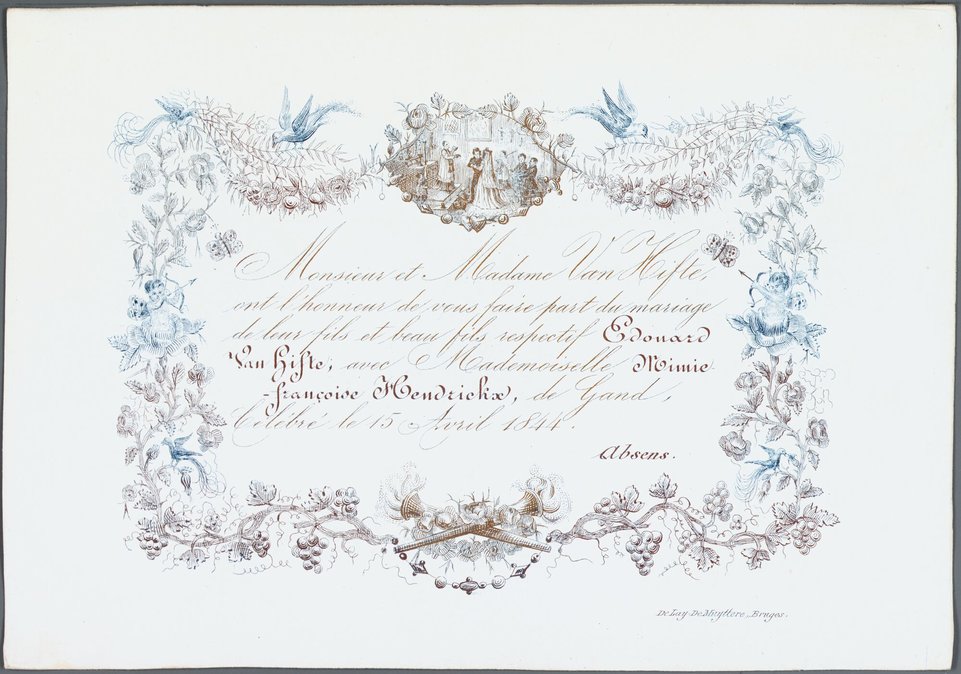 Monsieur et Madame Van Hifte,
ont l'honneur de vous faire part du mariage
de leur fils et beau fils respectif Edouard
Van Hifte, avec Mademoiselle Mimie
-françoise Hendrickx, de Gand,
Célébré le 15 Avril 1844.
Absens.
De Lay-De Muyttere, Bruges.